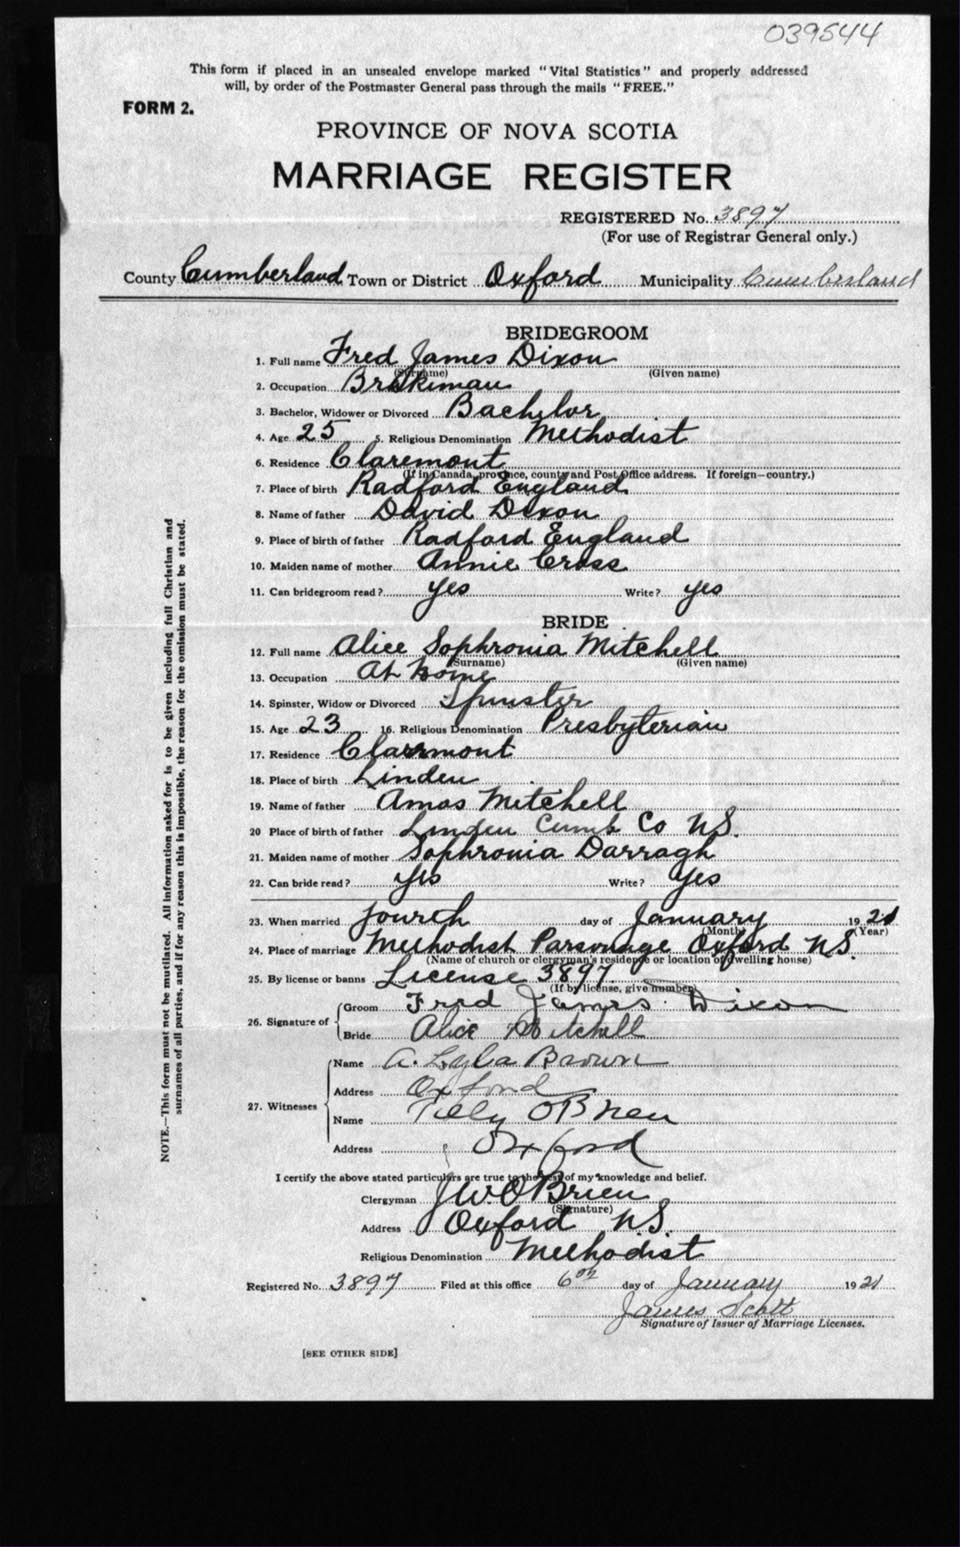 039544
This form if placed in an unsealed envelope marked "Vital Statistics" and properly addressed
will, by order of the Postmaster General pass through the mails "FREE."
FORM 2.
PROVINCE OF NOVA SCOTIA
MARRIAGE REGISTER
REGISTERED No. 3897
(For use of Registrar General only.)
County Cumberland Town or District Oxford Municipality Cumberland
BRIDEGROOM
1. Full name Fred James Dixon
(Surname) (Given name)
2. Occupation Brakeman
3. Bachelor, Widower or Divorced Bachelor
4. Age 25 5. Religious Denomination Methodist
6. Residence Claremont
(If in Canada, province, county and Post Office address. If foreign—country.)
7. Place of birth Radford England
8. Name of father David Dixon
9. Place of birth of father Radford England
10. Maiden name of mother Annie Cross
11. Can bridegroom read? yes Write? yes
BRIDE
12. Full name Alice Sophronia Mitchell
(Surname) (Given name)
13. Occupation At home
14. Spinster, Widow or Divorced Spinster
15. Age 23 16. Religious Denomination Presbyterian
17. Residence Claremont
18. Place of birth Linden
19. Name of father Amos Mitchell
20 Place of birth of father Linden Cumb Co NS.
21. Maiden name of mother Sophronia Darragh
22. Can bride read? Yes Write? Yes
23. When married fourth day of January 1921
(Month) (Year)
24. Place of marriage Methodist Parsonage Oxford NS.
(Name of church or clergyman's residence or location of dwelling house)
25. By license or banns License 3897
(If by license, give number)
26. Signature of Groom Fred James Dixon
Bride Alice Mitchell
27. Witnesses Name A. Brown
Address Oxford
Name O'Brien
Address Oxford
I certify the above stated particulars are true to the best of my knowledge and belief.
Clergyman J W O'Brien
(Signature)
Address Oxford NS.
Religious Denomination Methodist
Registered No. 3897 Filed at this office 6th day of January 1921
James Scott
Signature of Issuer of Marriage Licenses.
[SEE OTHER SIDE]
NOTE.—This form must not be mutilated. All information asked for is to be given including full Christian and
surnames of all parties, and if for any reason this is impossible, the reason for the omission must be stated.